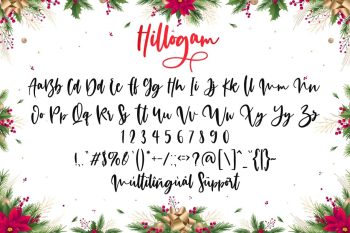 Hillogam
Aa Bb Cc Dd Ee Ff Gg Hh Ii Jj Kk Ll Mm Nn
Oo Pp Qq Rr Ss Tt Uu Vv Ww Xx Yy Zz
1 2 3 4 5 6 7 8 9 0
!,."#$%&'()*+-/:;<=>?@[\]^_`{|}~
Multilingual Support